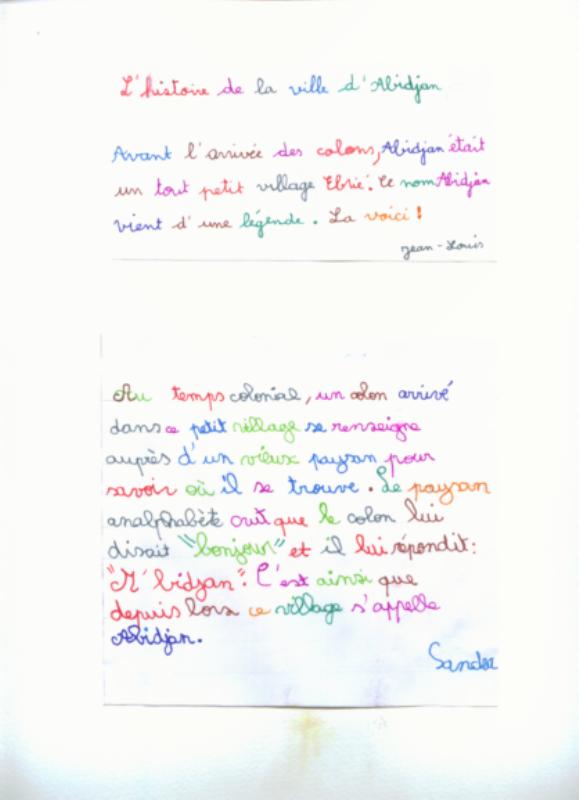 L'histoire de la ville d'Abidjan
Avant l'arrivée des colons, Abidjan était
un tout petit village Ebrié. Ce nom Abidjan
vient d'une légende. La voici !
Jean-Louis
Au temps colonial, un colon arrivé
dans ce petit village se renseigne
auprès d'un vieux paysan pour
savoir où il se trouve. Le paysan
analphabète crut que le colon lui
disait "bonjour" et il lui répondit:
"M'bidjan". C'est ainsi que
depuis lors ce village s'appelle
Abidjan.